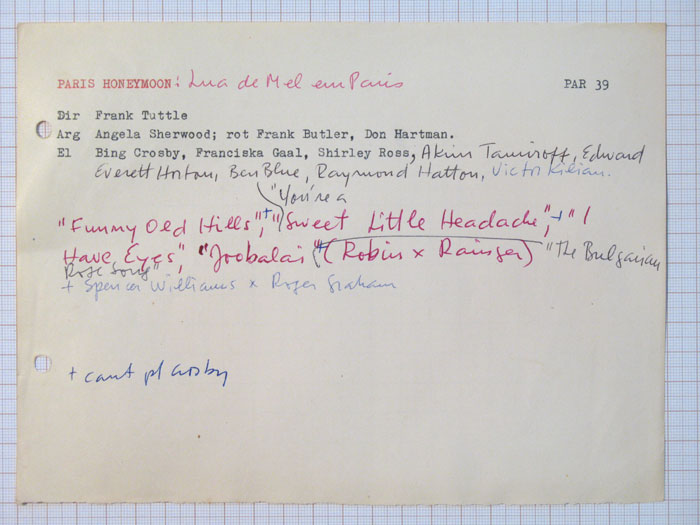 PARIS HONEYMOON: Lua de Mel em Paris PAR 39
Dir Frank Tuttle
Arg Angela Sherwood; rot Frank Butler, Don Hartman.
El Bing Crosby, Franciska Gaal, Shirley Ross, Akim Tamiroff, Edward
Everett Horton, Ben Blue, Raymond Hatton, Victor Kilian.
"You're a
"Funny Old Hills",+ "Sweet Little Headache",+ "I
Have Eyes", "Joobalai"+ (Robin x Rainger) "The Bulgarian
Rose Song"
+ Spencer Williams x Roger Graham
+ cant pl Crosby